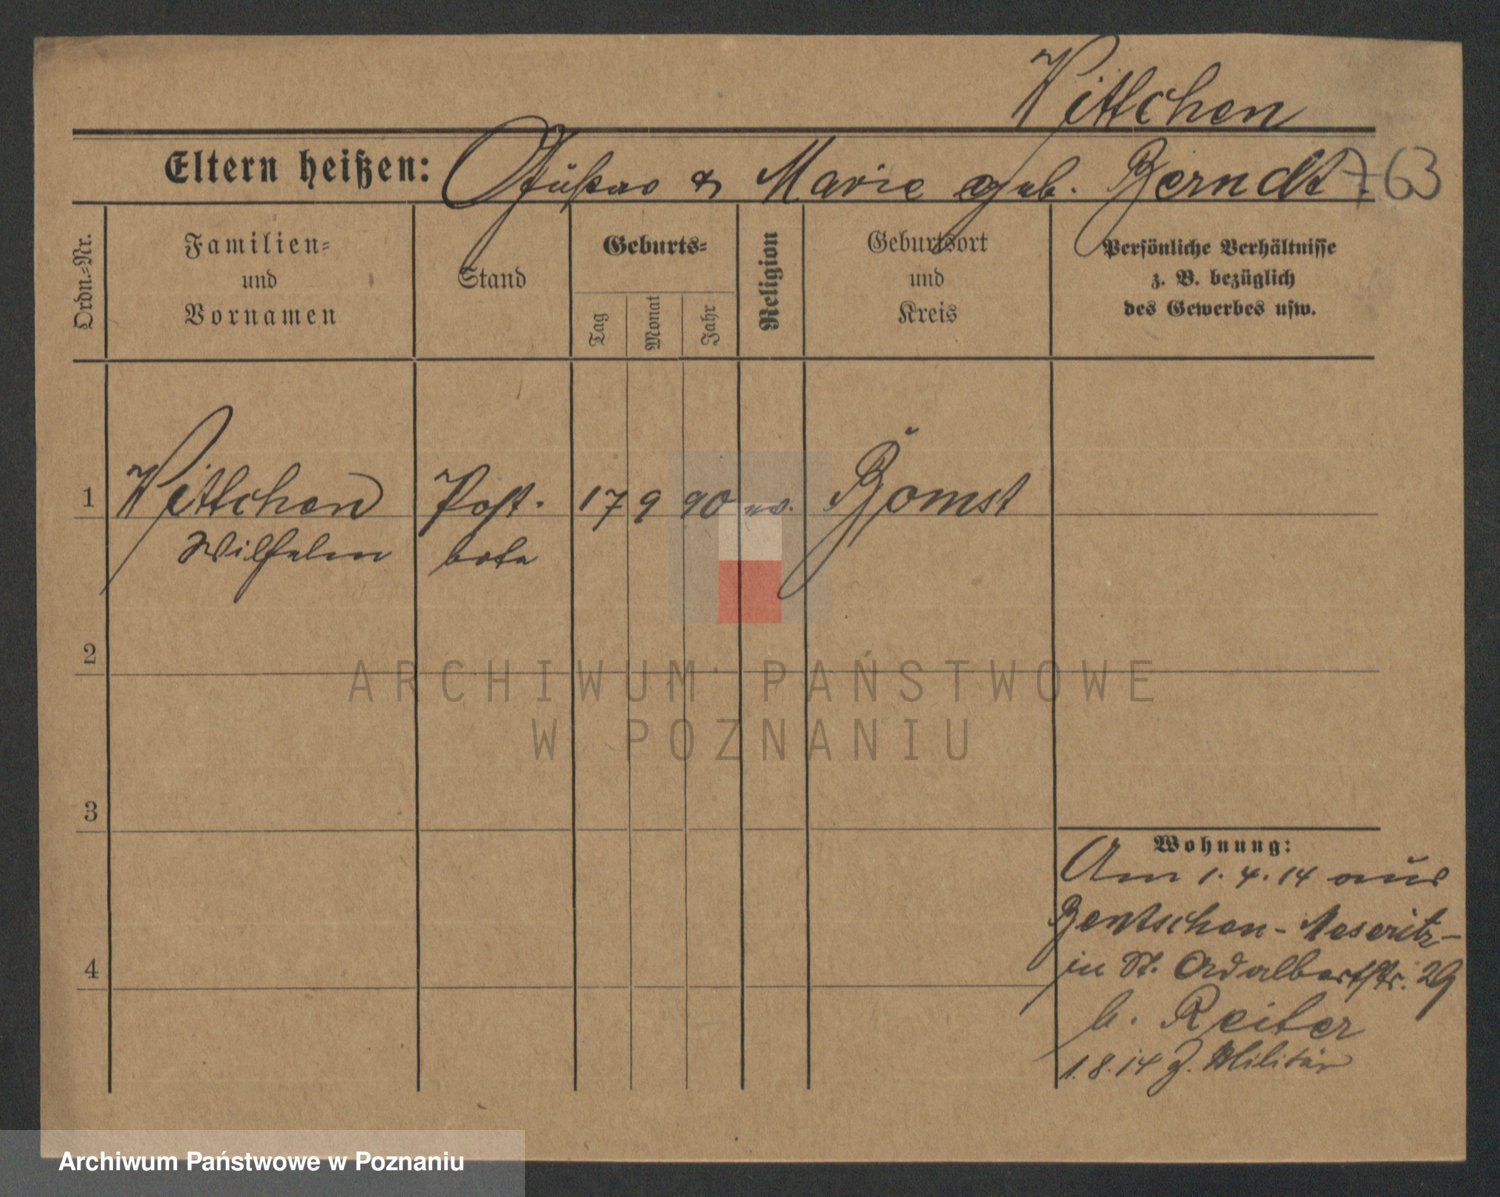 Wittchen
Eltern heißen: Gustav & Marie geb. Berndt 763
Ordn.-Nr.
Familien-
und
Vornamen
Stand
Geburts-
Tag
Monat
Jahr
Religion
Geburtsort
und
Kreis
Persönliche Verhältnisse
z. B. bezüglich
des Gewerbes usw.
1 Wittchen Post- 17 9 90 ev. Bomst
Wilhelm bote
2
ARCHIWUM PAŃSTWOWE
W POZNANIU
3
Wohnung:
Am 1.4.14 aus
Bentschen-Meseritz-
in St. Adalbertstr. 29
b. Reiter
1.8.14 z. Militär
4
Archiwum Państwowe w Poznaniu